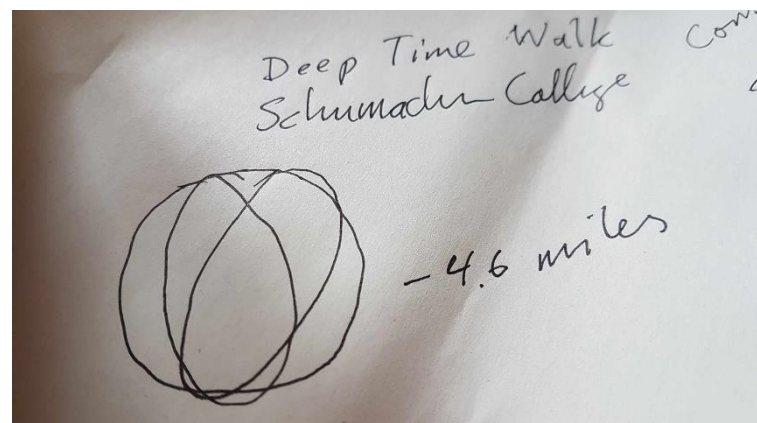 Deep Time Walk Com
Schumacher College
- 4.6 miles